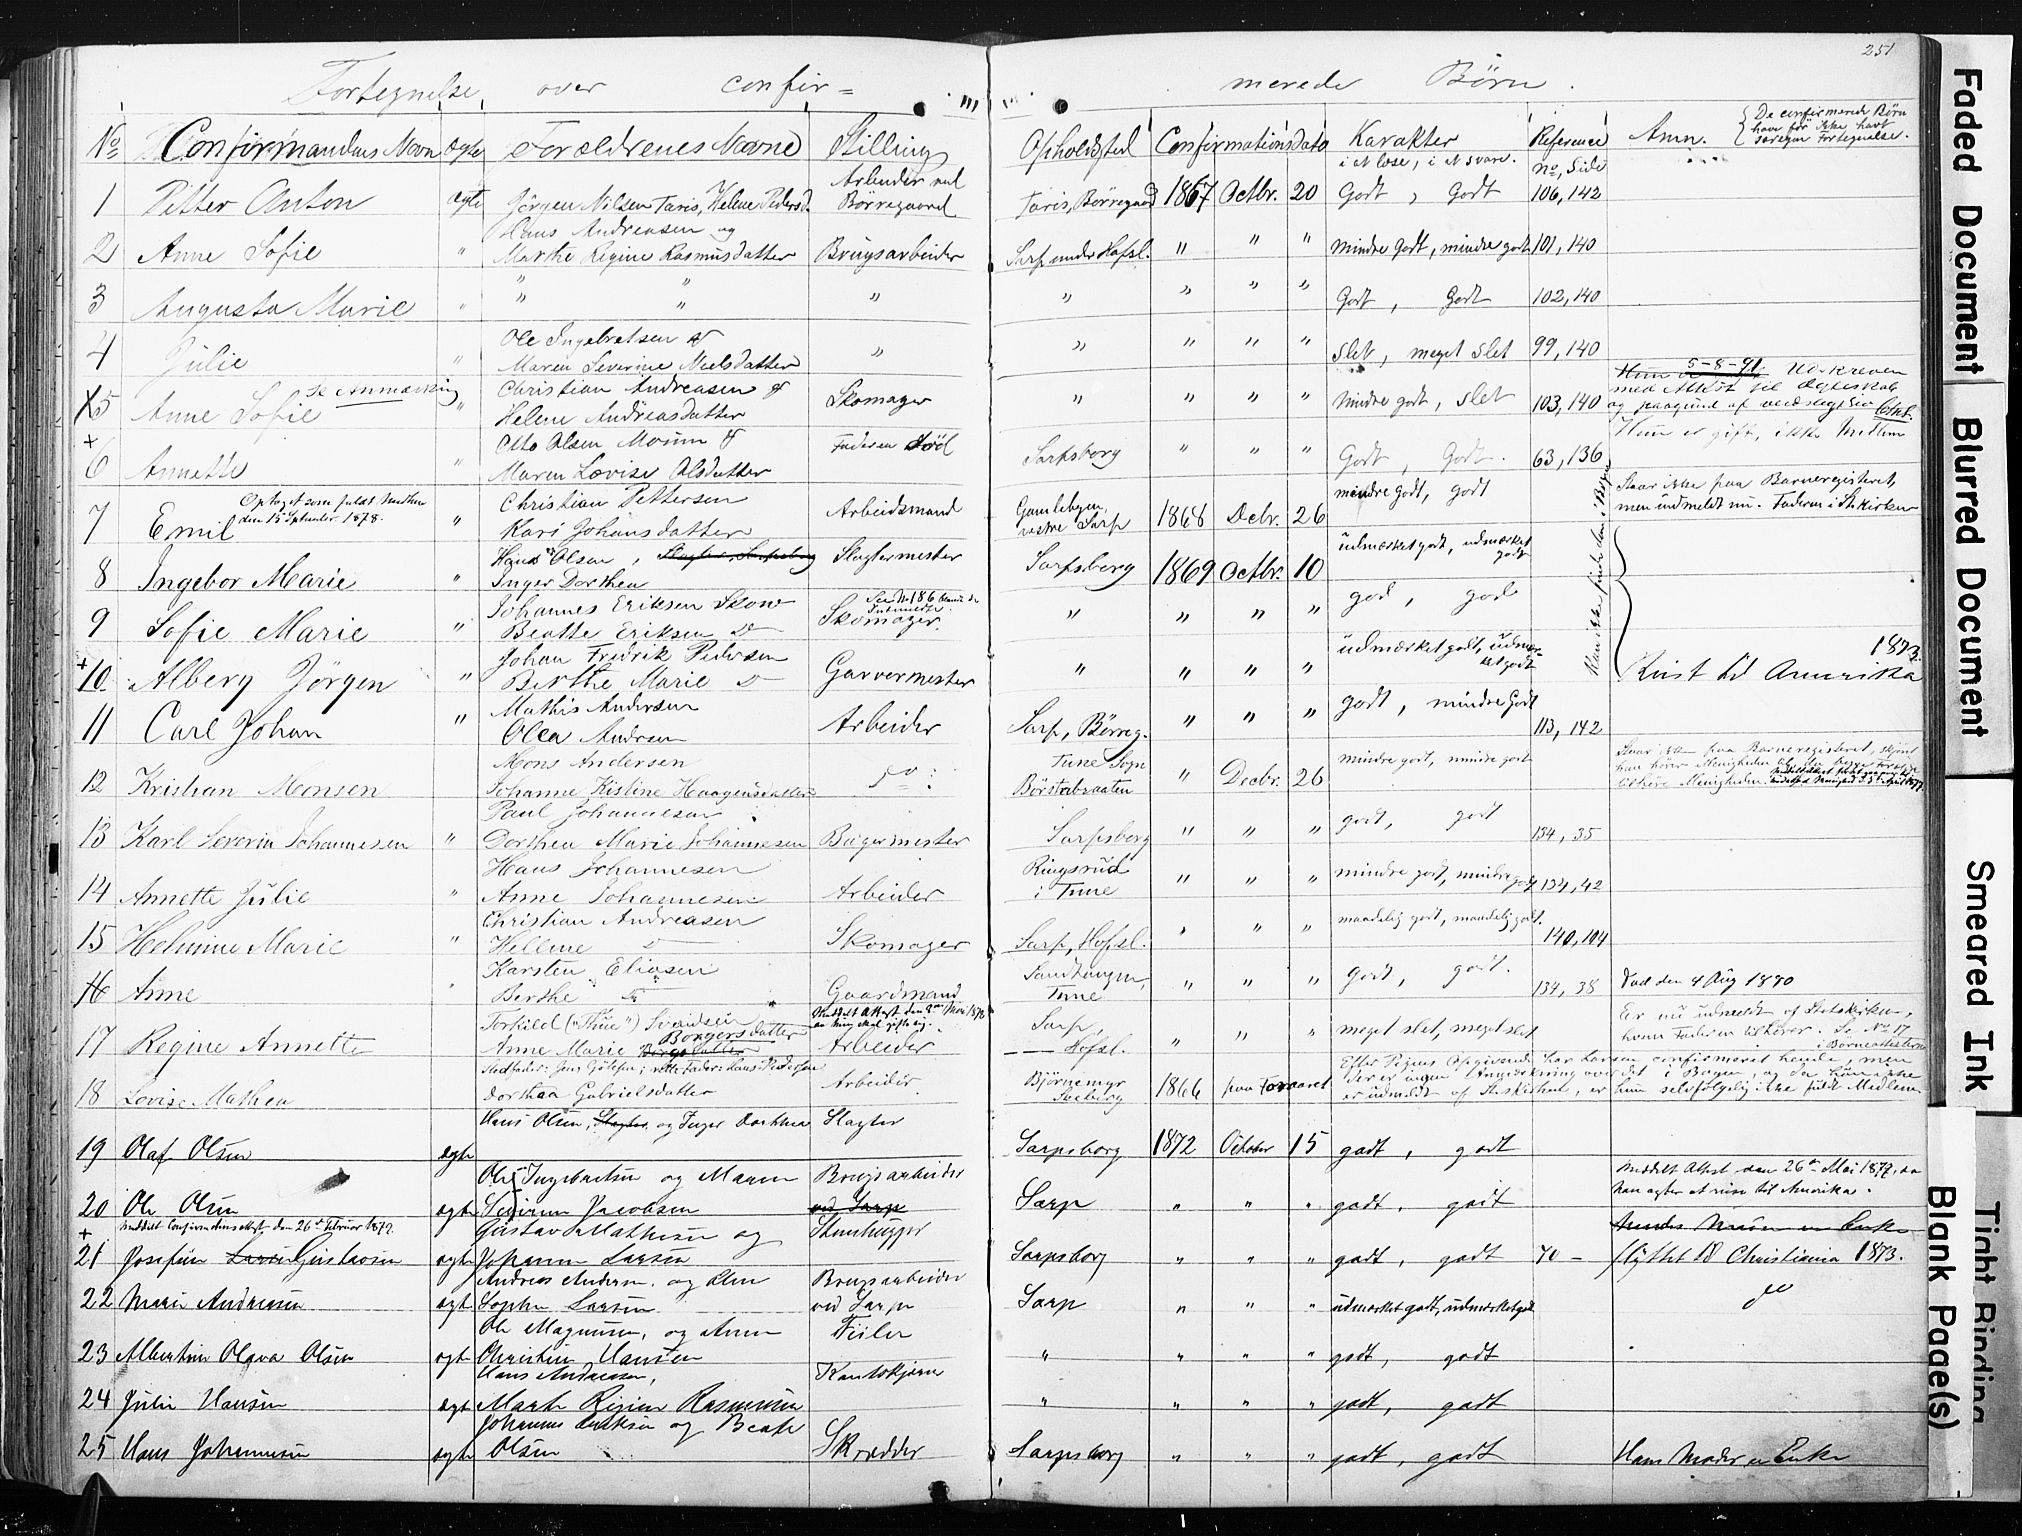 251
Fortegnelse over confir= merede Børn.
No Confirmandens Navn ægte Forældrenes Navne Stilling Opholdsted Confirmationsdato Karakter i at læse, i at svare. Reference no, Side Anm. {De confirmerede Børn have før ikke havt særegen Fortegnelse.
1 Petter Anton ægte Jörgen Nilsen Taris, Helene Pedersd. Arbeider ved Borregaard Taris, Børregaard 1867 Octbr. 20 Godt, Godt 106, 142
2 Anne Sofie " Hans Andreasen og Marthe Regine Rasmusdatter Brugsarbeider Sarp under Hafsl. " " " mindre godt, mindre godt 101, 140
3 Augusta Marie " " " " " " " " Godt, Godt 102, 140
4 Julie " Ole Ingebretsen & Maren Severine Nielsdatter " " " " " slet, meget slet 99, 140
X5 Anne Sofie Se Anmærkning " Christian Andreasen & Helene Andreasdatter Skomager " " " " Mindre godt, slet 103, 140 5-8-91 Udskreven med Attest til Ægteskab og paagrund af
+ 6 Annette " Otto Olsen Moum & Maren Lovise Olsdatter Faderen død Sarpsborg " " " Godt, Godt. 63, 136 Hun er gift, ikke Medlem
7 Emil Optaget som fuldt Medlem den 15 September 1878. " Christian Pettersen Kari Johansdatter Arbeidsmand Gamlebyen, vestre Sarp 1868 Debr. 26 mindre godt, godt Staar ikke paa Barneregisteret, men indmeldt nu. Faderen i St.kirken
8 Ingebor Marie " Hans Olsen, Slagter, Sarpsborg Inger Dorthea Slagtermester Sarpsborg 1869 Octbr. 10 udmærket godt, udmærket godt
Kan ikke findes den i Bogen
9 Sofie Marie " Johannes Eriksen Skow Beatte Eriksen Do See No 186 Skomager. " " " " god, god
+ 10. Alberg Jørgen " Johan Fredrik Pedersen Berthe Marie Do Garvermester " " " " udmærket godt, udmærket godt Reist til Amerika 1873.
11 Carl Johan " Mathis Andersen Olea Andersen Arbeider Sarp, Børreg. " " " godt, mindre Godt 113, 142
12 Kristian Monsen Mons Andersen Johanne Kistine Haagensdatter Do: Tune Sogn Börstabraaten " Decbr. 26 mindre godt, mindre godt Staar ikke paa Barneregisteret, skjønt han hører Menigheden til, da begge Forældre tilhøre Menigheden.
13 Karl Severin Johannesen " Paul Johannesen. Dorthea Marie Johannesen Bagermester Sarpsborg " " " godt, godt 134, 35
14 Annette Julie " Hans Johannesen Anne Johannesen Arbeider Ringsrud i Tune " " " mindre godt, mindre godt 134, 42
15 Helmine Marie " Christian Andreasen Hellene Do Skomager Sarp, Hafsl. " " " maadelig godt, maadelig godt. 140, 104
16 Anne " Karsten Eliasen Berthe Do Gaardmand Sandtangen, Tune " " " godt, godt. 134, 38 Død den 4 Aug 1880
17 Regine Annette Torkild ("Thue") Svendsen Anne Marie Borgersdatter Meddelt Attest den 2den Mai 1878 da hun skal gifte sig. Arbeider Sarp, Hafsl. " " " meget slet, meget slet Er nu udmeldt af Statskirken, hvem Faderen tilhører. Se No 17 i Børneattesterne
18 Lovise Mathea Stedfader: Jens Gjølsen; rette Fader: Hans Pedersen Dorthea Gabrielsdatter Arbeider Björnemyr Seeberg 1866 paa Foraaret Efter Piges Opgivende har Larsen confirmeret hende, men der er ingen Anmærkning over det i Bogen, og da hun ikke er udmeldt af St.skirken, er hun selvfølgelig ikke fuldt Medlem
19 Olaf Olsen ægte Hans Olsen, Slagter og Inger Dorthea Slagter Sarpsborg 1872 October 15 godt, godt
20 Ole Olsen ægte Ole Ingebretsen og Maren Severine Jacobsen Brugsarbeider ved Sarp Sarp " " " godt, godt meddelt Attest den 26de Mai 1879, da han agter at reise til Amerika.
+ 21 Josefine Larsen Gustavsen meddelt Confirmationsattest den 26de Februar 1879. ægte Gustav Mathisen og Johanne Larsen Stenhugger Sarpsborg " " " godt, godt 70 - Hendes Moder er Enke flyttet til Christiania 1873.
22 Marie Andreasen ægte Andreas Andersen. og Elen Sophie Larsen Brugsarbeider ved Sarp Sarp " " " udmærket godt, udmærket godt do
23 Albertine Olava Olsen ægte Ole Magnusen, og Anne Christine Hansen Fiiler " " " " godt, godt
24 Julie Hansen ægte Hans Andreasen, Marte Regine Rasmussen Kantskjærer " " " " godt, godt
25 Hans Johannesen ægte Johannes Eriksen og Beate Olsen Skrædder Sarpsborg " " " godt, godt Hans Moder er Enke
Faded Document
Blurred Document
Smeared Ink
Tight Binding
Blank Page(s)